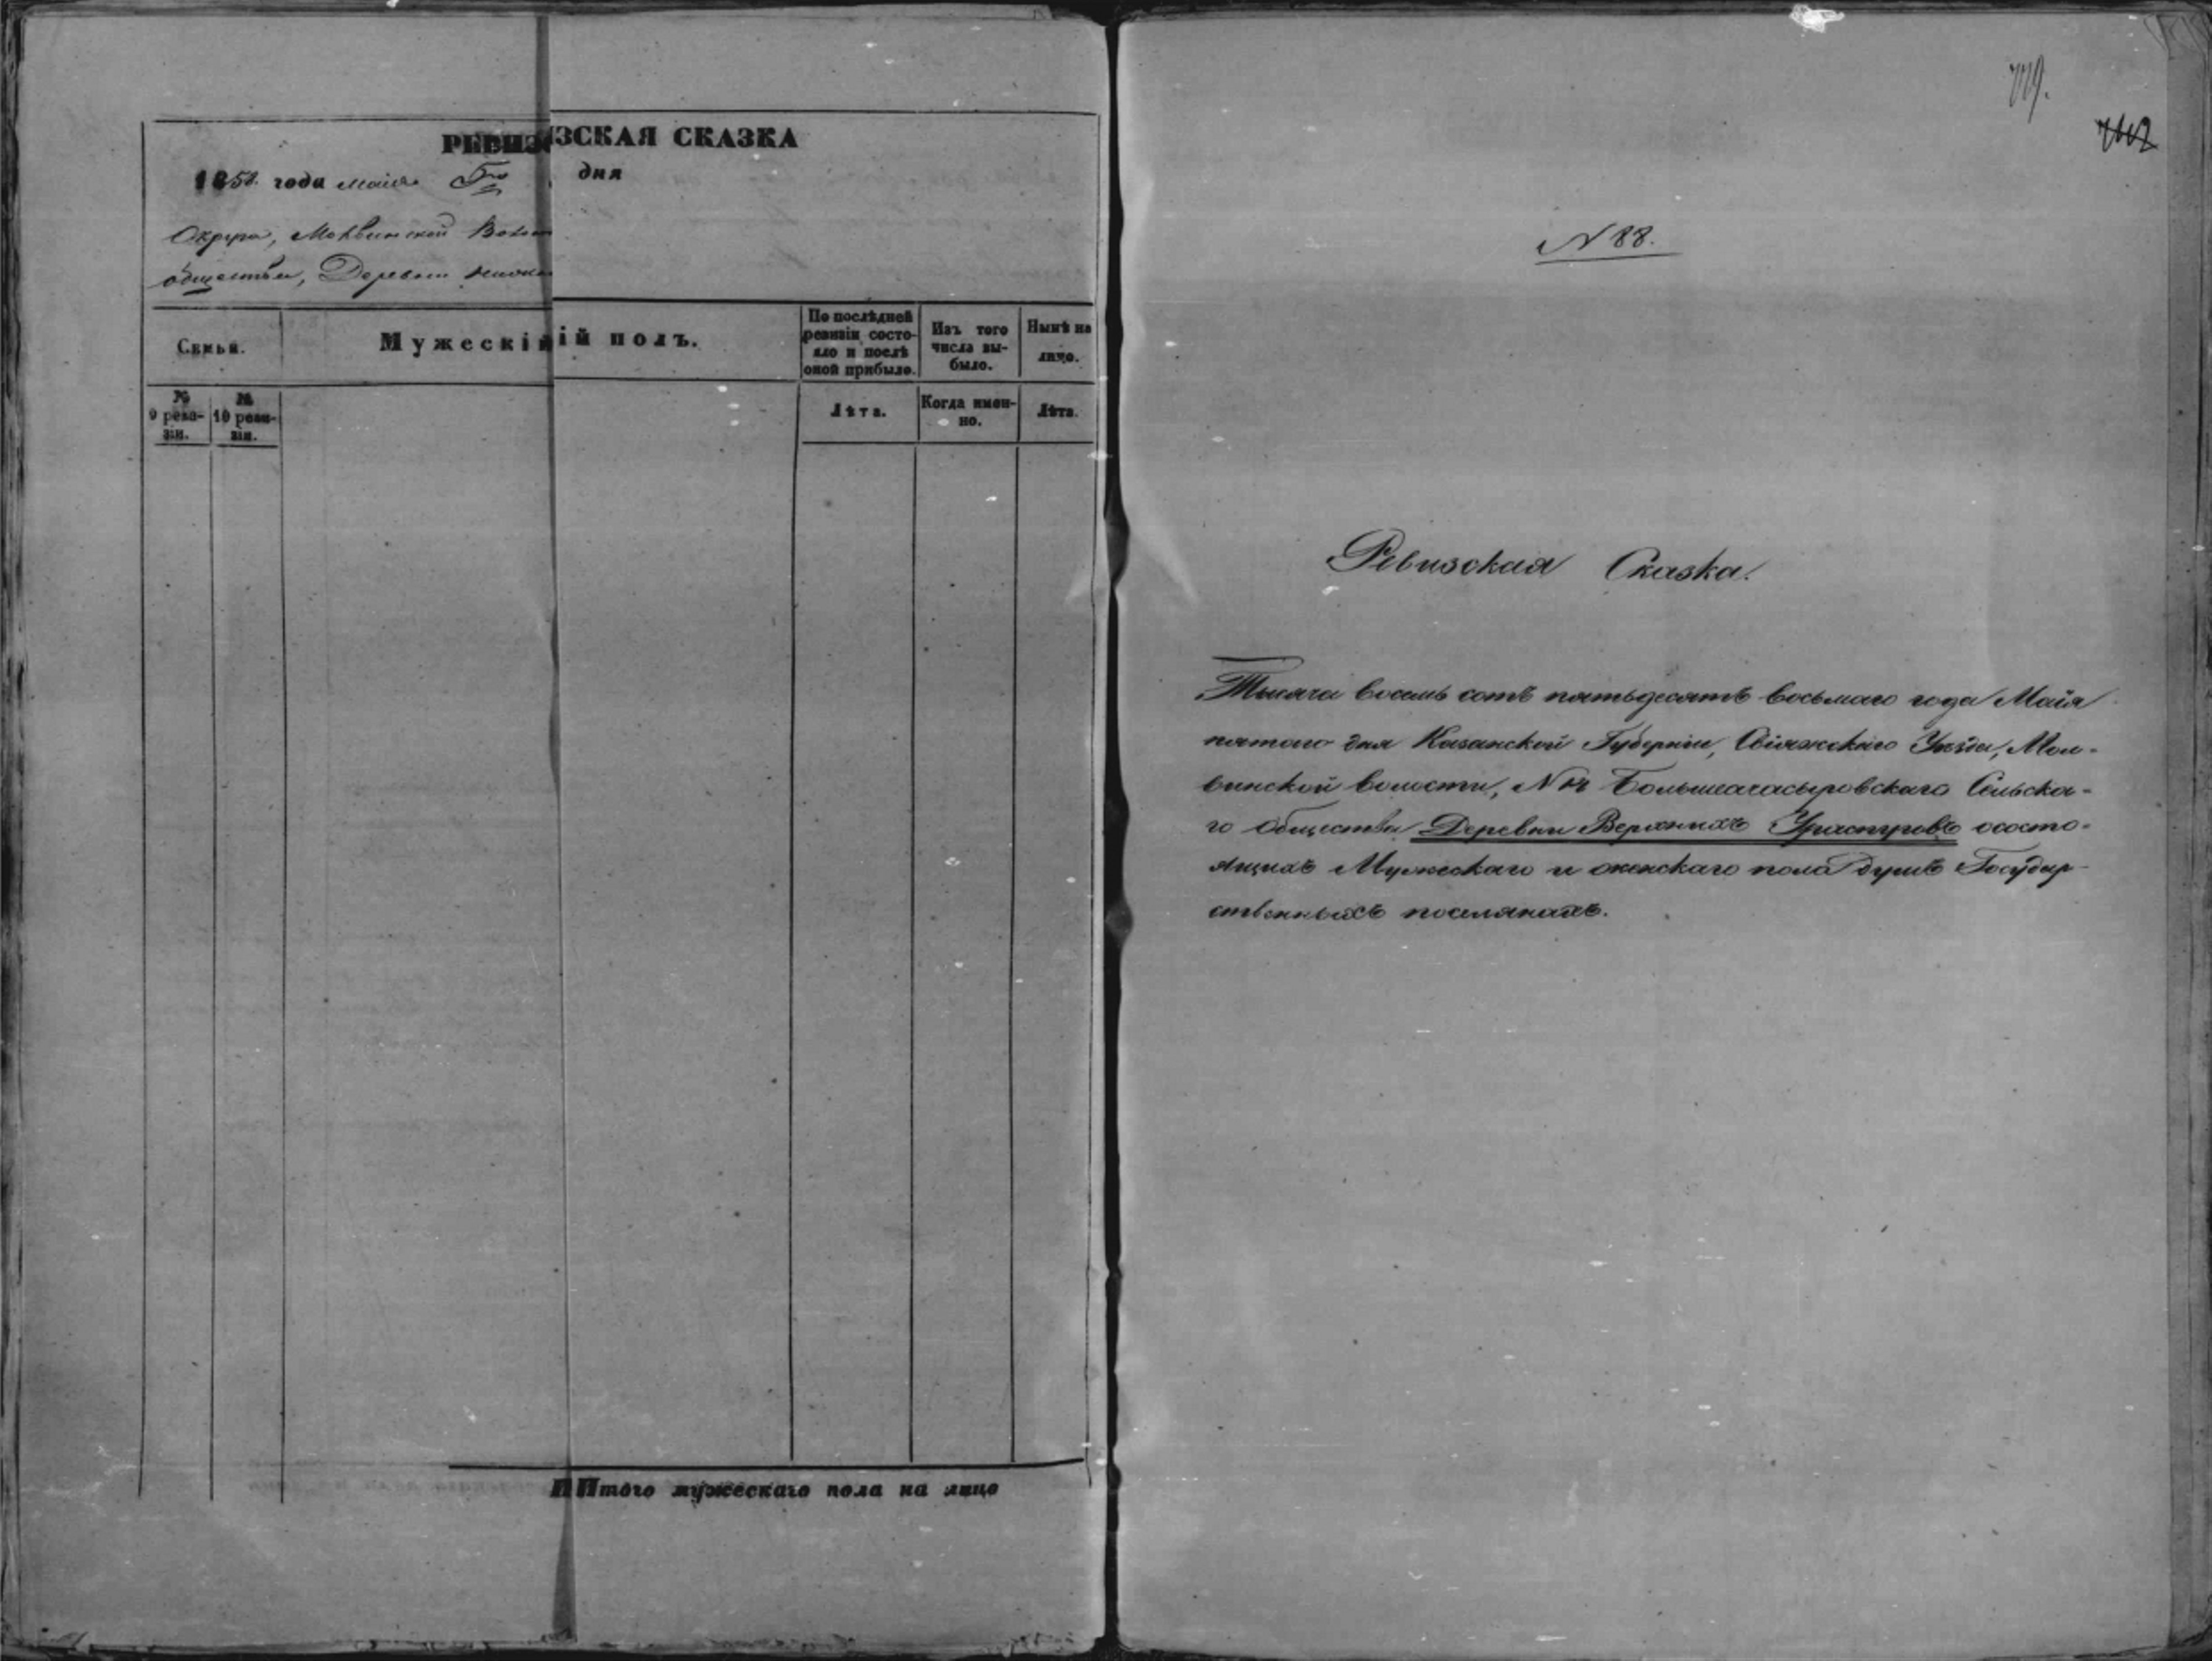 РЕВИЗСКАЯ СКАЗКА
1858 года маія 5го дня
Округа, Молвинской Воло
общества, Деревни
Семьи.
Мужескій полъ.
По послѣдней ревизіи состояло и послѣ оной прибыло.
Изъ того числа выбыло.
Нынѣ на лицо.
№ 9 ревизіи.
№ 10 ревизіи.
Лѣта.
Когда именно.
Лѣта.
Итого мужескаго пола на лицо
719.
N 88.
Ревизская Сказка.
Тысяча восемь сотъ пятьдесятъ восьмаго года Маія
пятого дня Казанской Губерніи, Свіяжскаго Уѣзда, Мол-
винской волости, N Большеачасыровскаго Сельска-
го Общества Деревни Верхнихъ Ураспуговъ ососто-
ящихъ Мужескаго и женскаго пола душъ Государ-
ственныхъ поселянахъ.